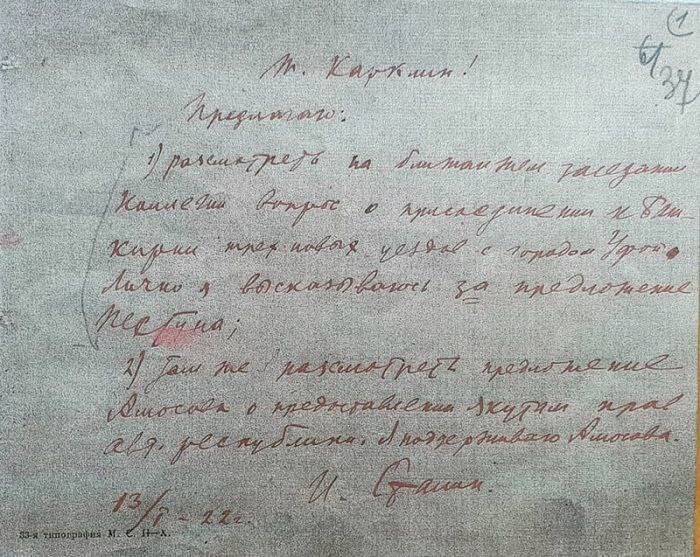 1
61
37
т. Карклин!
Предлагаю:
1) рассмотреть на ближайшем заседании
Коллегии вопрос о присоединении к Баш
кирии трех новых уездов с городом Уфой.
Лично я высказываюсь за предложение
2) Там же рассмотреть предложение
Амосова о предоставлении якутам прав
авт. республики. Я поддерживаю Амосова.
И. Сталин.
13/I - 22 г.
33-я типография М. С. Н—Х.